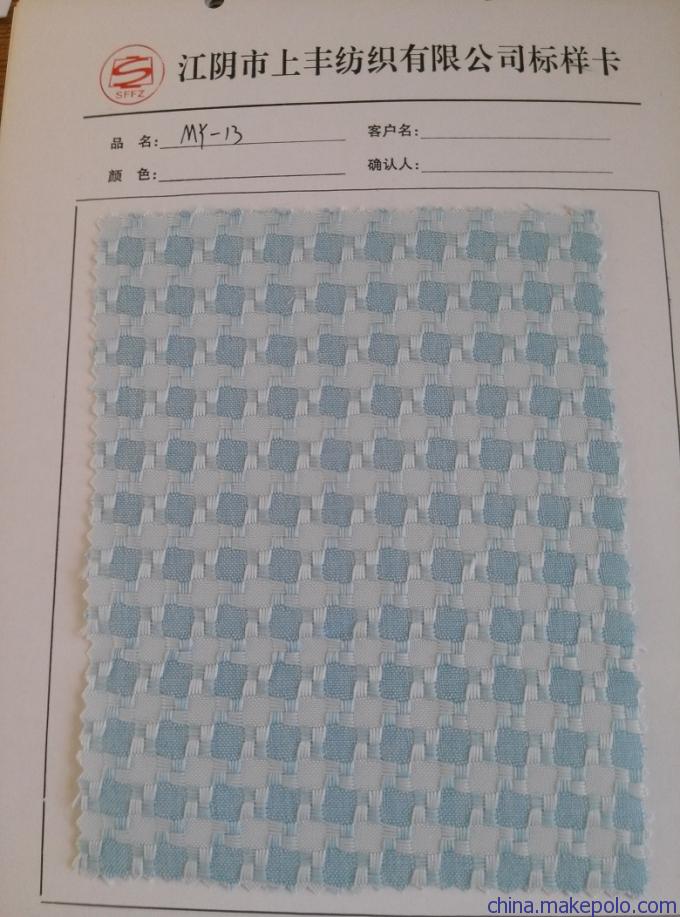 SFFZ 江阴市上丰纺织有限公司标样卡
品 名: MY-13 客户名:
颜 色: 确认人:
china.makepolo.com